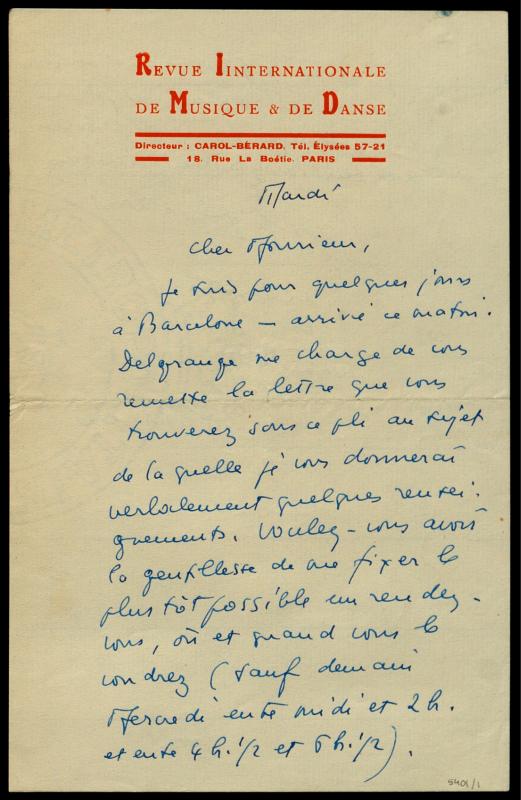 REVUE IINTERNATIONALE
DE MUSIQUE & DE DANSE
Directeur : CAROL-BÉRARD. Tél. Élysées 57-21
18, Rue La Boétie. PARIS
Mardi
Cher Monsieur,
Je suis pour quelques jours
à Barcelone — arrivé ce matin.
Delgrange me charge de vous
remettre la lettre que vous
trouverez sous ce pli au sujet
de laquelle je vous donnerai
verbalement quelques rensei-
gnements. Voulez-vous avoir
la gentillesse de me fixer le
plus tôt possible un rendez-
vous, où et quand vous le
voudrez (sauf demain
Mercredi entre midi et 2h.
et entre 4h.1/2 et 6h.1/2).
5401/1